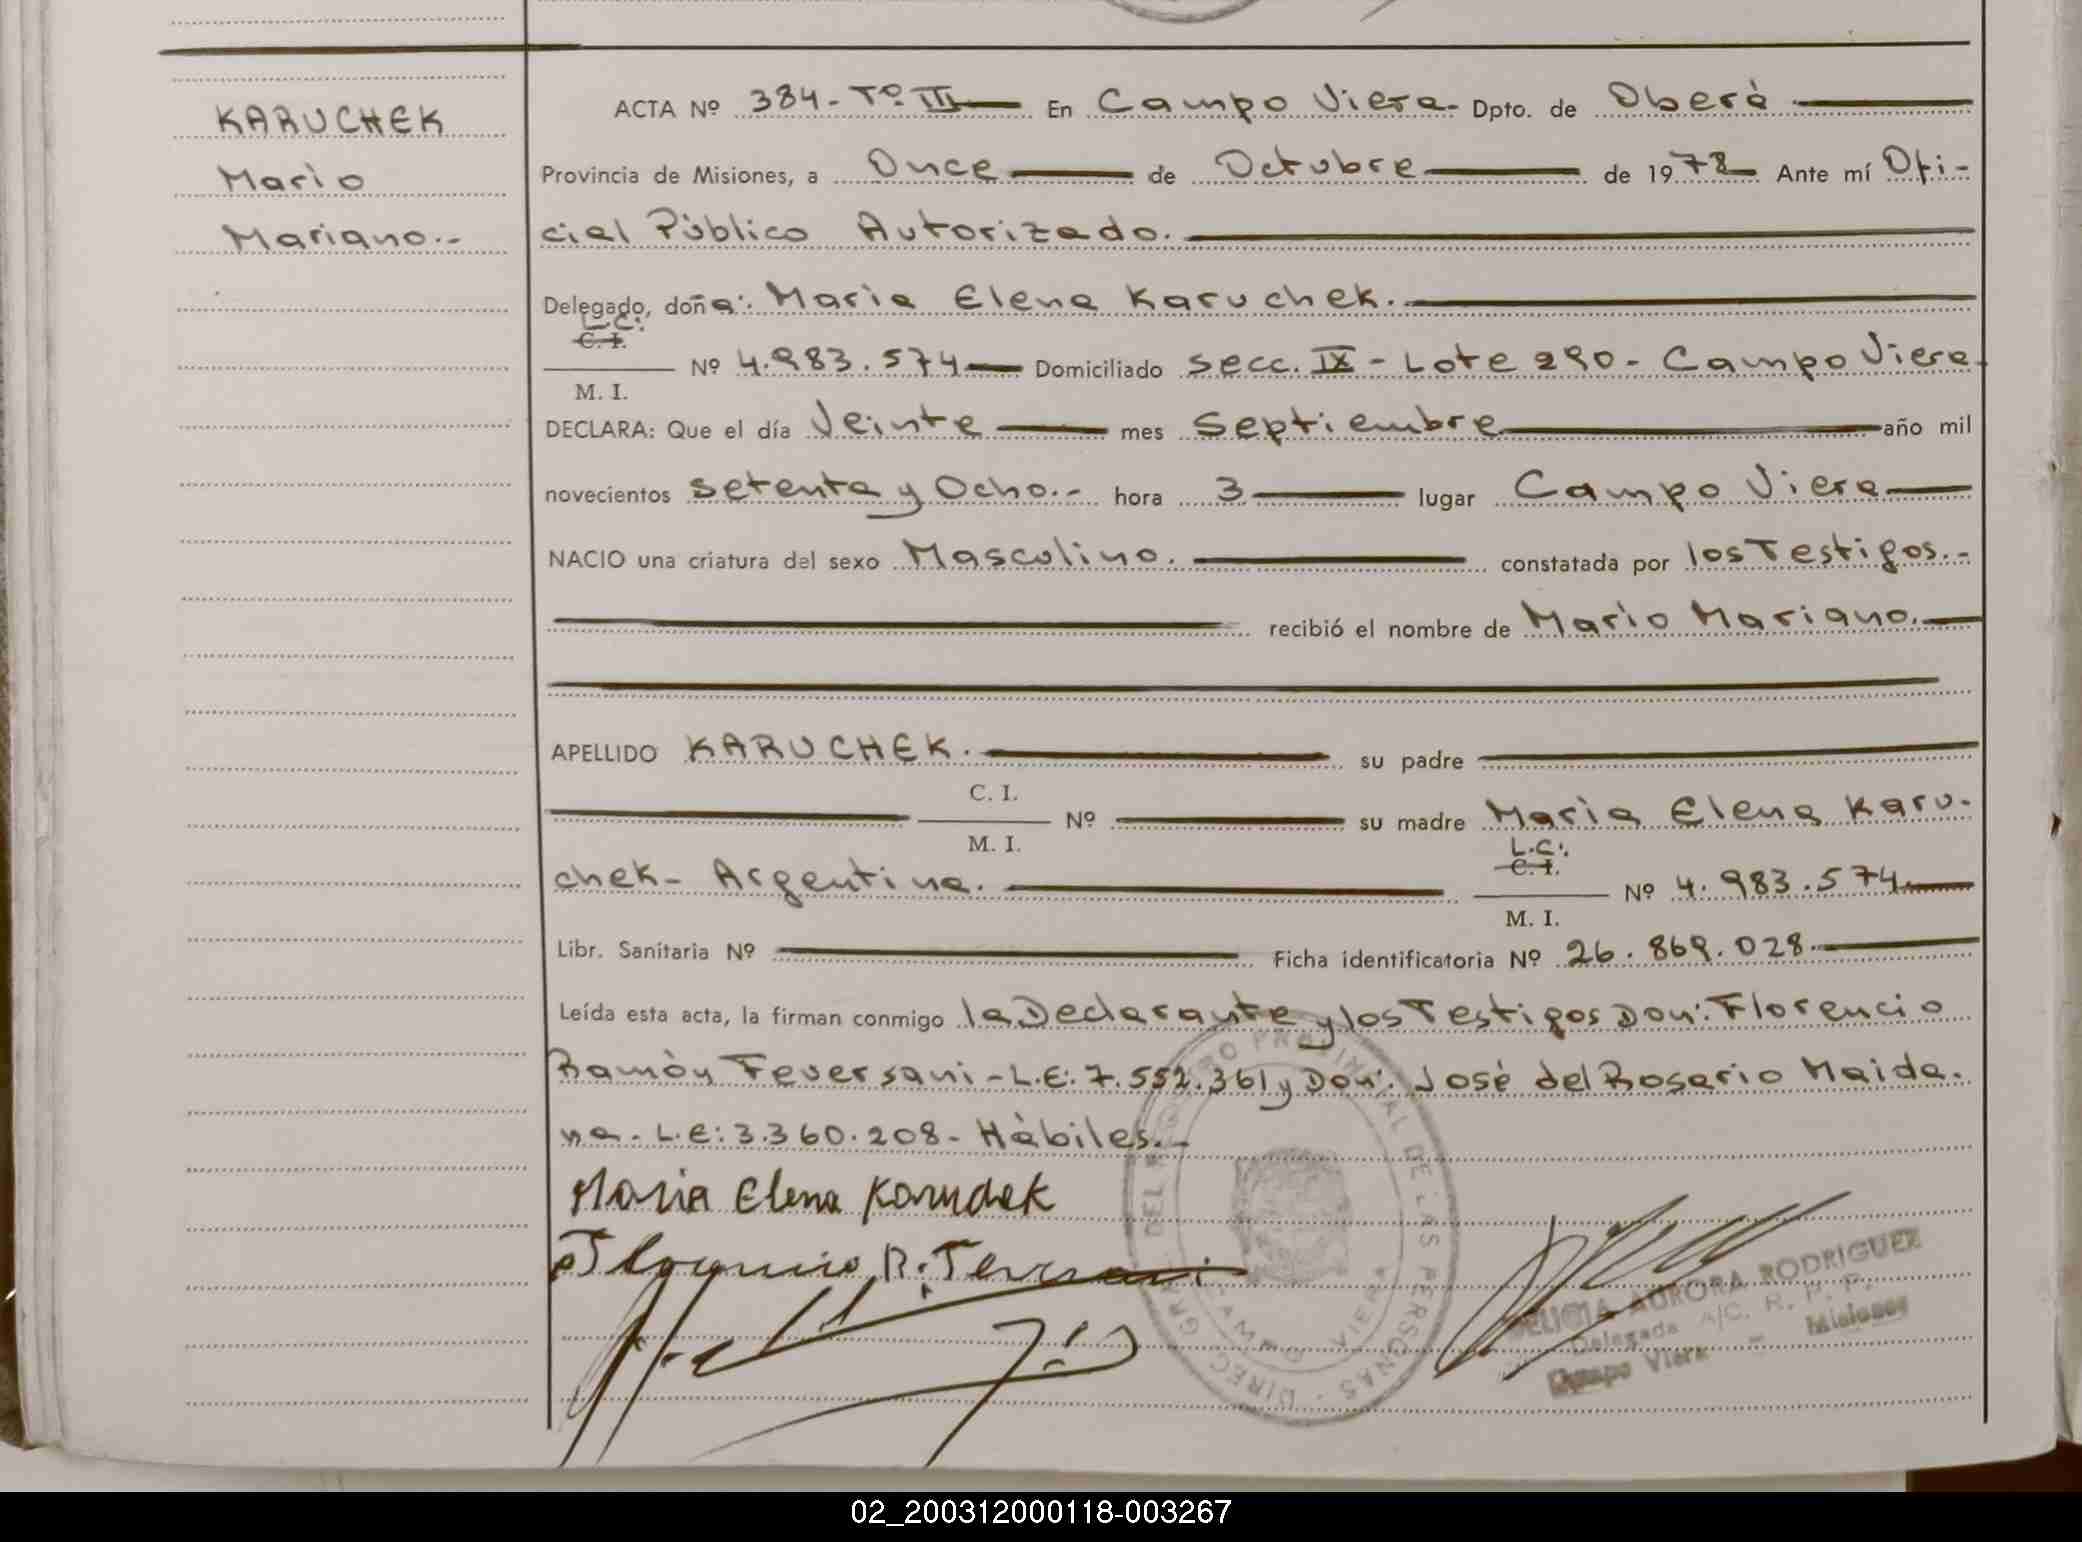 KARUCHEK
Mario
Mariano.-
ACTA Nº 384-Tº.III En Campo Viera- Dpto. de Oberà
Provincia de Misiones, a Once de Octubre de 1978 Ante mí Ofi-
cial Pùblico Autorizado.
Delegado, doña: Maria Elena Karuchek.
L.C:
C. I.
M. I.
Nº 4.983.574 Domiciliado Secc. IX - Lote 290- Campo Viera-
DECLARA: Que el día Veinte mes Septiembre año mil
novecientos Setenta y Ocho.- hora 3 lugar Campo Viera
NACIO una criatura del sexo Masculino. constatada por los Testigos.-
recibió el nombre de Mario Mariano.
APELLIDO KARUCHEK. su padre
C. I.
M. I.
Nº su madre Maria Elena Karu-
chek- Argentina.
L.C:
C. I.
M. I.
Nº 4.983.574
Libr. Sanitaria Nº Ficha identificatoria Nº 26.869.028
Leída esta acta, la firman conmigo la Declarante y los Testigos Don: Florencio
Ramòn Feversani-L.E: 7.552.361 y Don: Josè del Rosario Maida-
na- L.E: 3.360.208- Hàbiles.-
Maria Elena Karuchek
R. Feversani
DIREC. GRAL. DEL REGISTRO PROVINCIAL DE LAS PERSONAS
CAMPO VIERA
FELICIA AURORA RODRIGUEZ
Delegada A/C. R. P. P.
Campo Viera - Misiones
02_200312000118-003267